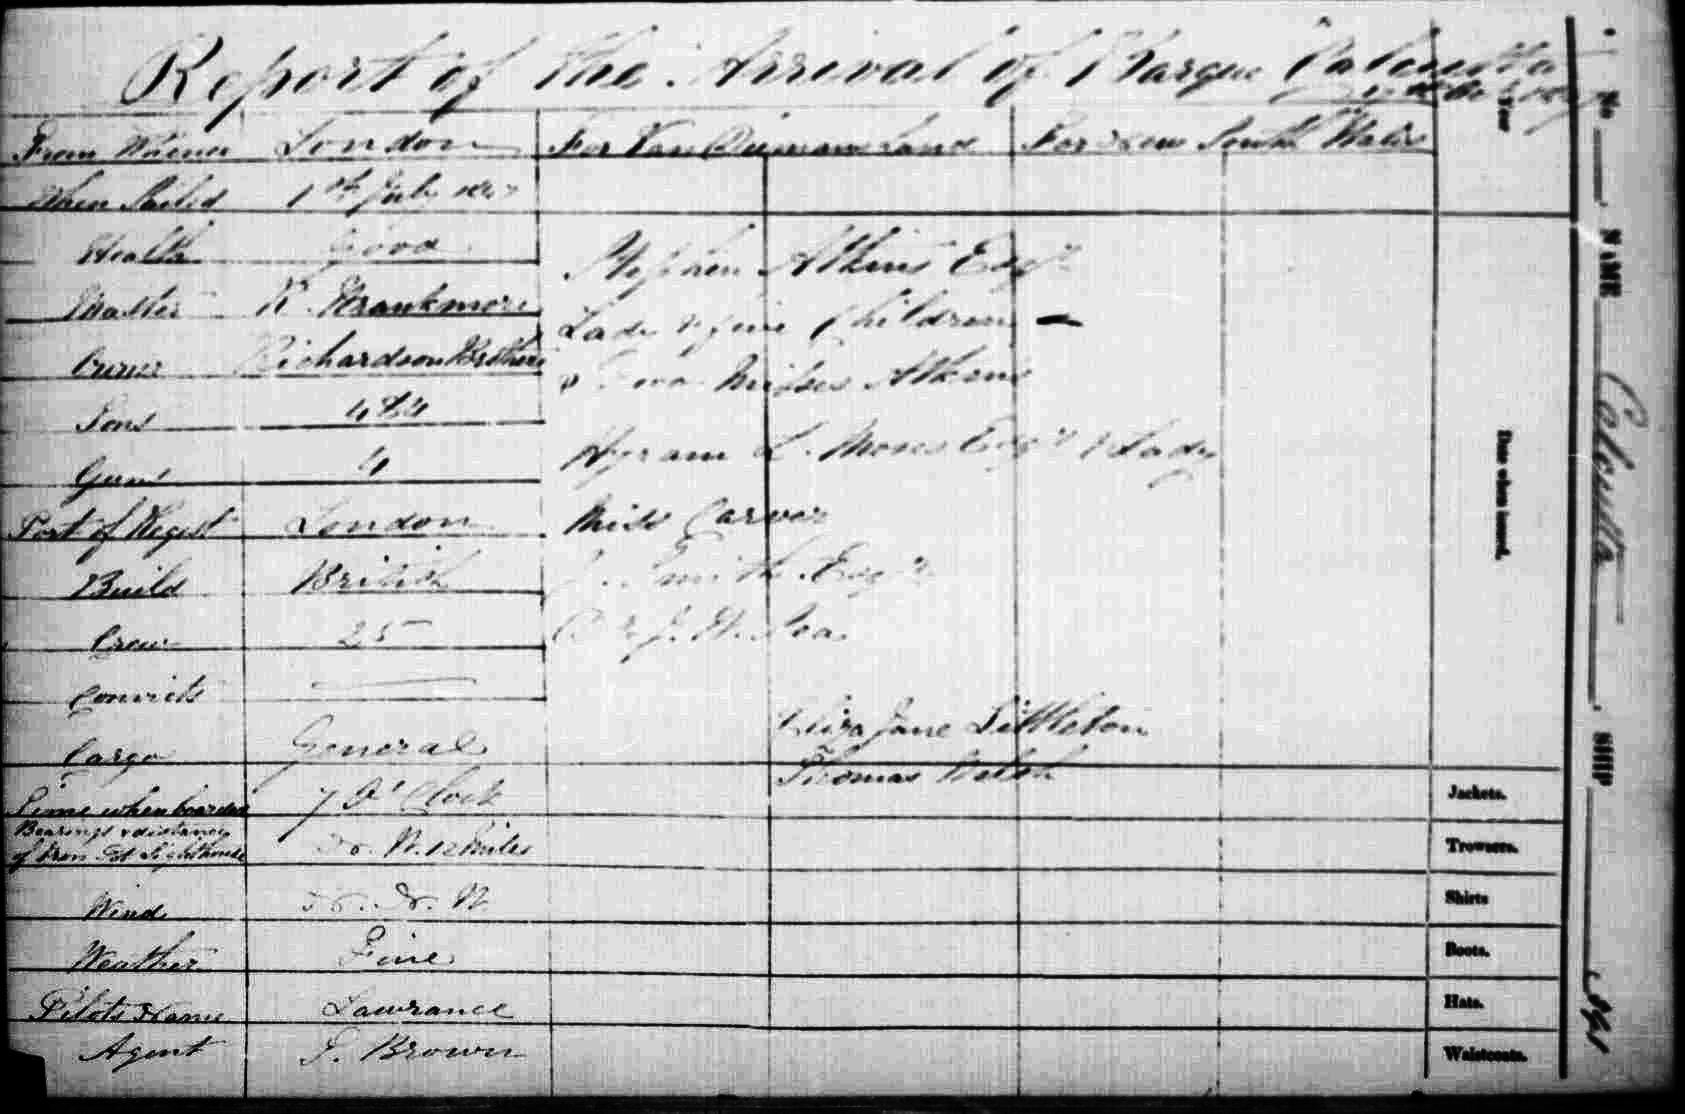 Report of the Arrival of Barque Calcutta
From Whence London For Van Diemans Land For New South Wales
When Sailed 1st July
Health Good
Master Wrankmore
Owner Richardson Brothers
Tons 484
Guns 4
Port of Regist London
Build British
Crew 25
Convicts —
Cargo General
Time when boarded 7 O'Clock
Bearings & distance
of Iron Pot Lighthouse No. W. 12 Miles
Wind
Weather Fine
Pilots Name Lawrance
Agent T. Brown
Stephen Atkins Esqr
Lady & five Children —
& Two Misses Atkins
Hyram L. Moses Esqr & Lady
Miss Carver
Smith Esqr
J. W.
Eliza Jane Littleton
Thomas Welsh
Date when issued.
Jackets.
Trowsers.
Shirts
Boots.
Hats.
Waistcoats.
No NAME Calcutta SHIP